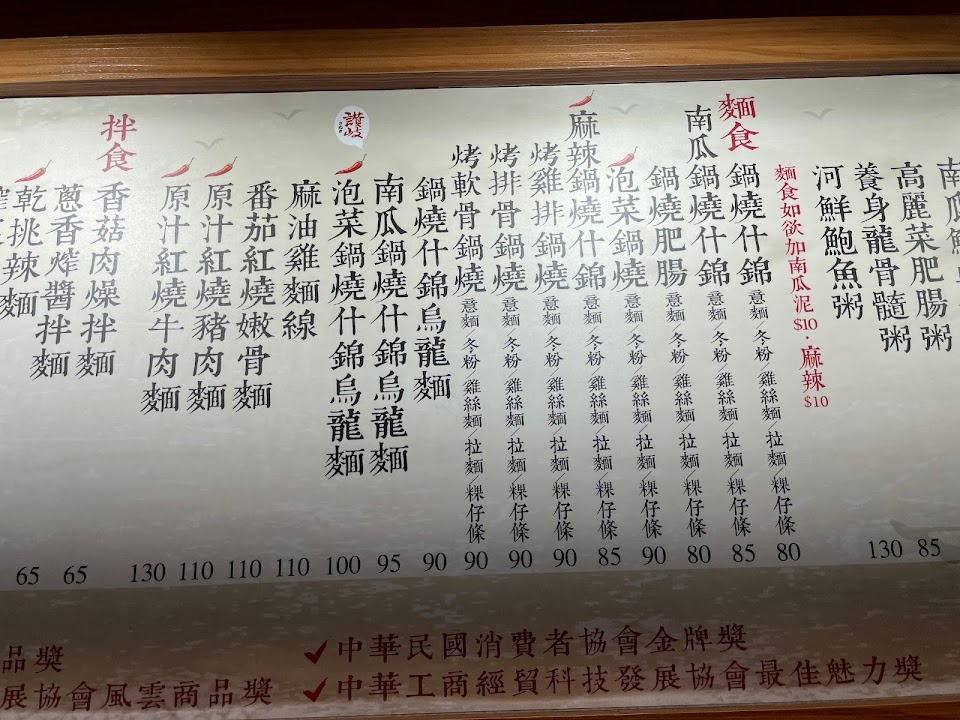 高麗菜肥腸粥
養身龍骨髓粥 85
河鮮鮑魚粥 130
麵食
麵食如欲加南瓜泥$10．麻辣$10
鍋燒什錦 意麵/冬粉/雞絲麵/拉麵/粿仔條 80
南瓜鍋燒什錦 意麵/冬粉/雞絲麵/拉麵/粿仔條 85
鍋燒肥腸 意麵/冬粉/雞絲麵/拉麵/粿仔條 80
泡菜鍋燒 意麵/冬粉/雞絲麵/拉麵/粿仔條 90
麻辣鍋燒什錦 意麵/冬粉/雞絲麵/拉麵/粿仔條 85
烤雞排鍋燒 意麵/冬粉/雞絲麵/拉麵/粿仔條 90
烤排骨鍋燒 意麵/冬粉/雞絲麵/拉麵/粿仔條 90
烤軟骨鍋燒 意麵/冬粉/雞絲麵/拉麵/粿仔條 90
鍋燒什錦烏龍麵 90
南瓜鍋燒什錦烏龍麵 95
讚岐
泡菜鍋燒什錦烏龍麵 100
麻油雞麵線 110
番茄紅燒嫩骨麵 110
原汁紅燒豬肉麵 110
原汁紅燒牛肉麵 130
拌食
香菇肉燥拌麵 65
蔥香炸醬拌麵 65
乾挑辣麵
✓中華民國消費者協會金牌獎
✓中華工商經貿科技發展協會最佳魅力獎
品獎
展協會風雲商品獎